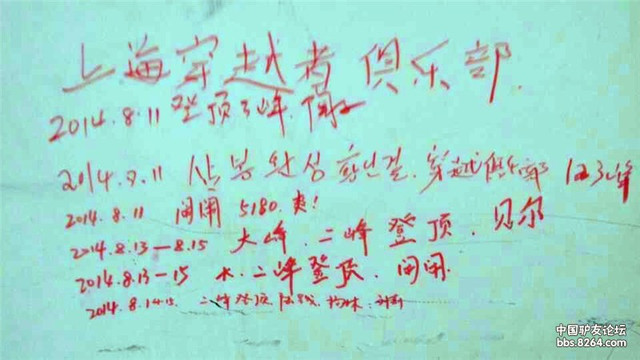 上海穿越者俱乐部.
2014.8.11 登顶三峰.
2014.7.11 穿越俱乐部 123峰
2014.8.11 闹闹 5180.爽!
2014.8.13—8.15 大峰.二峰登顶.贝尔
2014.8.13—15 大.二峰登顶.闹闹.
2014.8.14.15 二峰登顶
中国驴友论坛
bbs.8264.com